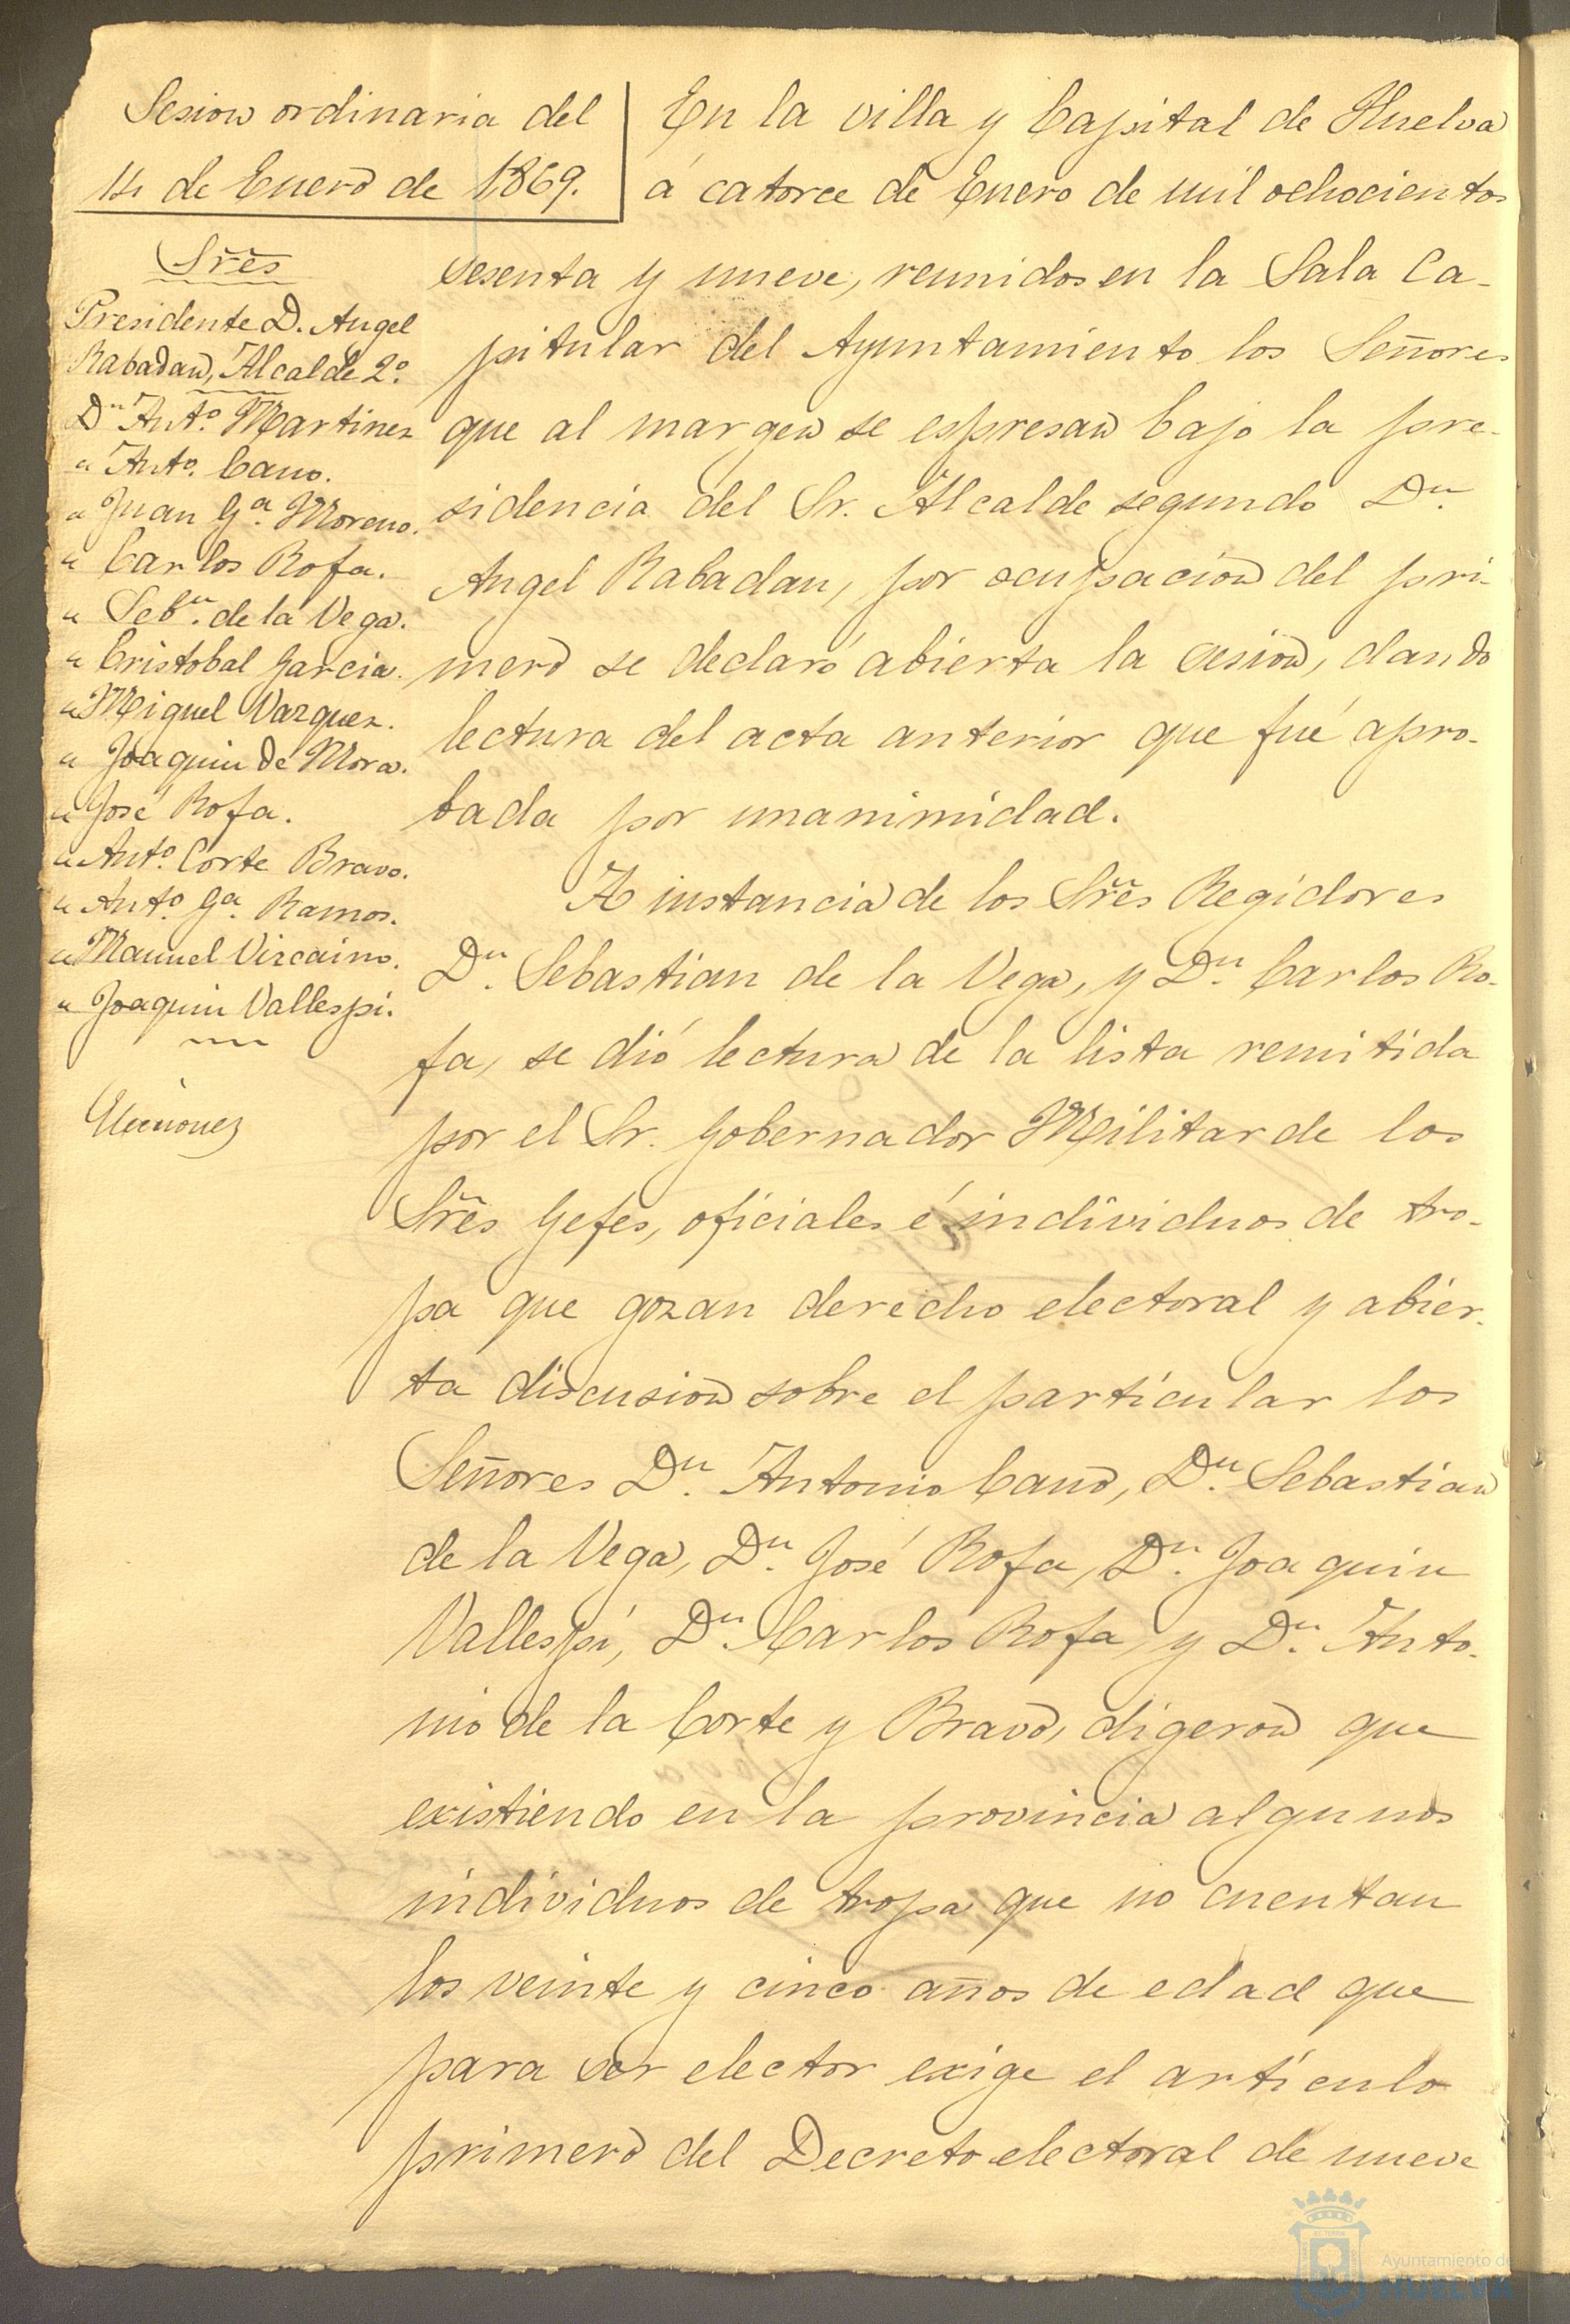 Sesion ordinaria del
14 de Enero de 1869.
Sres
Presidente D. Angel
Rabadan, Alcalde 2º.
Dn Antº. Martinez
" Antº. Cano.
" Juan Gª. Moreno.
" Carlos Rofa.
" Sebn. de la Vega.
" Cristobal Garcia.
" Miguel Vazquez.
" Joaquin de Mora.
" José Rofa.
" Antº. Corte Bravo.
" Antº. Gª. Ramos.
" Manuel Vizcaino.
" Joaquin Vallespi.
Elecciones
En la villa y Capital de Huelva
á catorce de Enero de mil ochocientos
sesenta y nueve, reunidos en la Sala Ca-
pitular del Ayuntamiento los Señores
que al margen se espresan bajo la pre-
sidencia del Sr. Alcalde segundo Dn.
Angel Rabadan, por ocupacion del pri-
mero se declaró abierta la cesion, dando
lectura del acta anterior que fué apro-
bada por unanimidad.
A instancia de los Sres Regidores
Dn. Sebastian de la Vega, y Dn. Carlos Ro-
fa, se dió lectura de la lista remitida
por el Sr. Gobernador Militar de los
Sres Gefes, oficiales é individuos de tro-
pa que gozan derecho electoral y abier-
ta discusion sobre el particular los
Señores Dn. Antonio Cano, Dn. Sebastian
de la Vega, Dn. José Rofa, Dn. Joaquin
Vallespí, Dn. Carlos Rofa, y Dn. Anto-
nio de la Corte y Bravo, digeron que
existiendo en la provincia algunos
individuos de tropa que no cuentan
los veinte y cinco años de edad que
para ser elector exige el artículo
primero del Decreto electoral de nueve
Ayuntamiento de
HUELVA